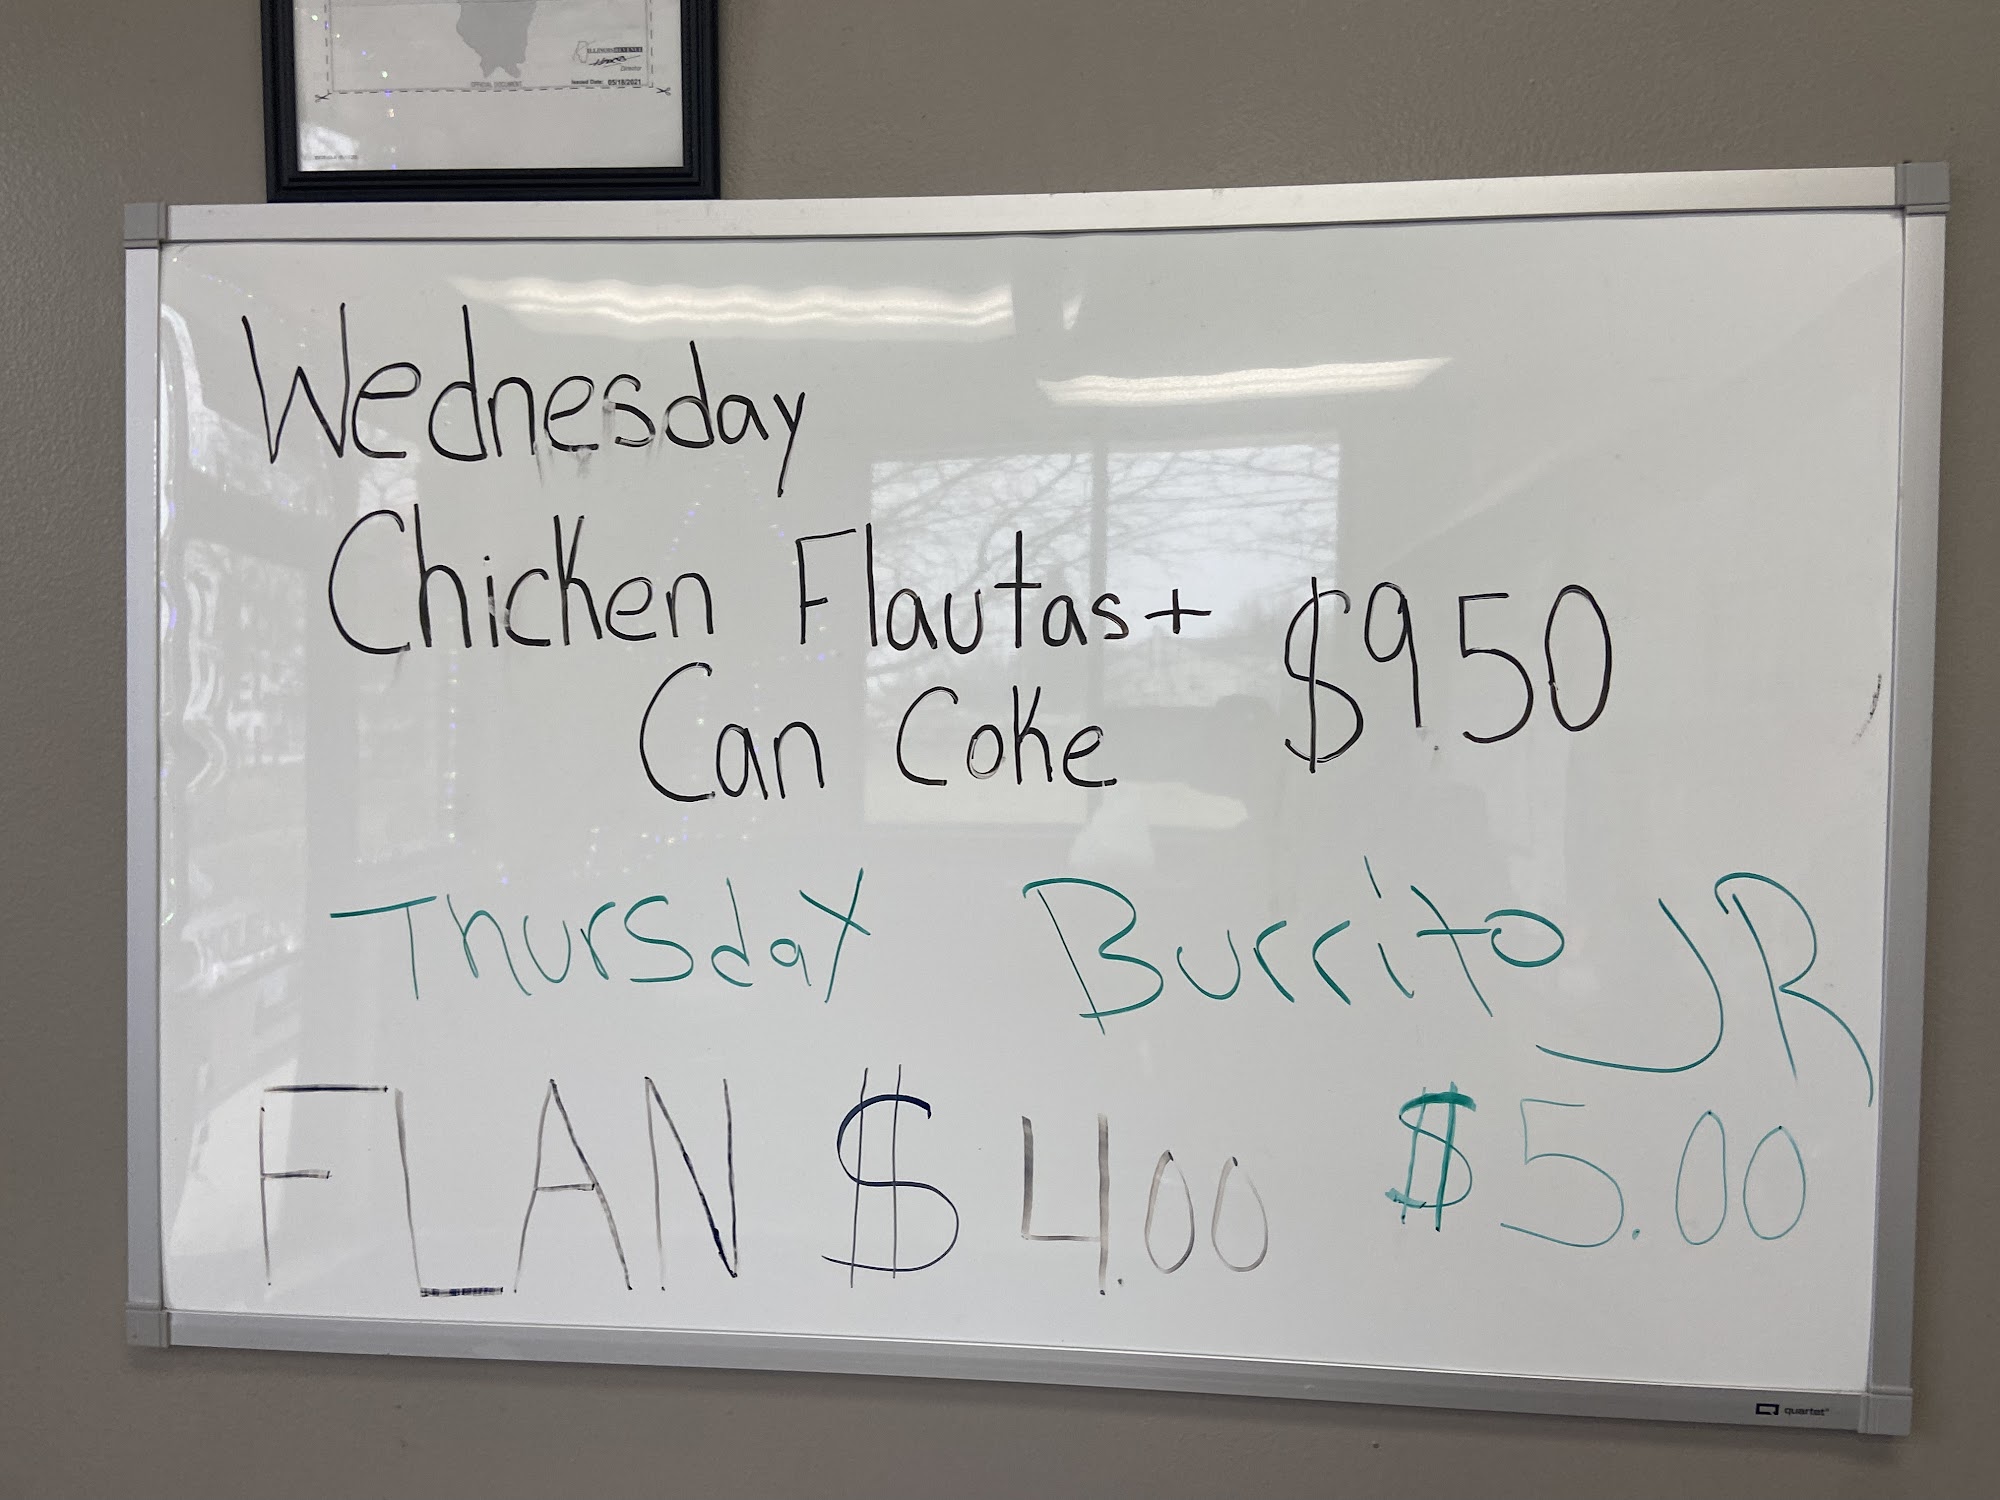 ILLINOIS REVENUE
Director
OFFICIAL DOCUMENT
Issued Date: 05/18/2021
Wednesday
Chicken Flautas +
Can Coke
$9.50
Thursday Burrito JR
FLAN $4.00
$5.00
quartet